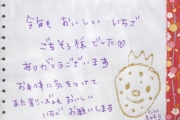 今年も おいしい いちご
ごちそう様でした♡
ありがとうございます
お身体に気をつけて
またおいしい
いちご お願いします